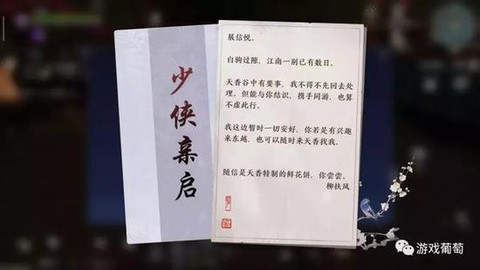 少侠亲启
展信悦。
白驹过隙，江南一别已有数日。
天香谷中有要事，我不得不先回去处
理。但能与你结识，携手同游，也算
不虚此行。
我这边暂时一切安好，你若是有兴趣
来东越，也可以随时来天香找我。
随信是天香特制的鲜花饼，你尝尝。
柳扶风
游戏葡萄